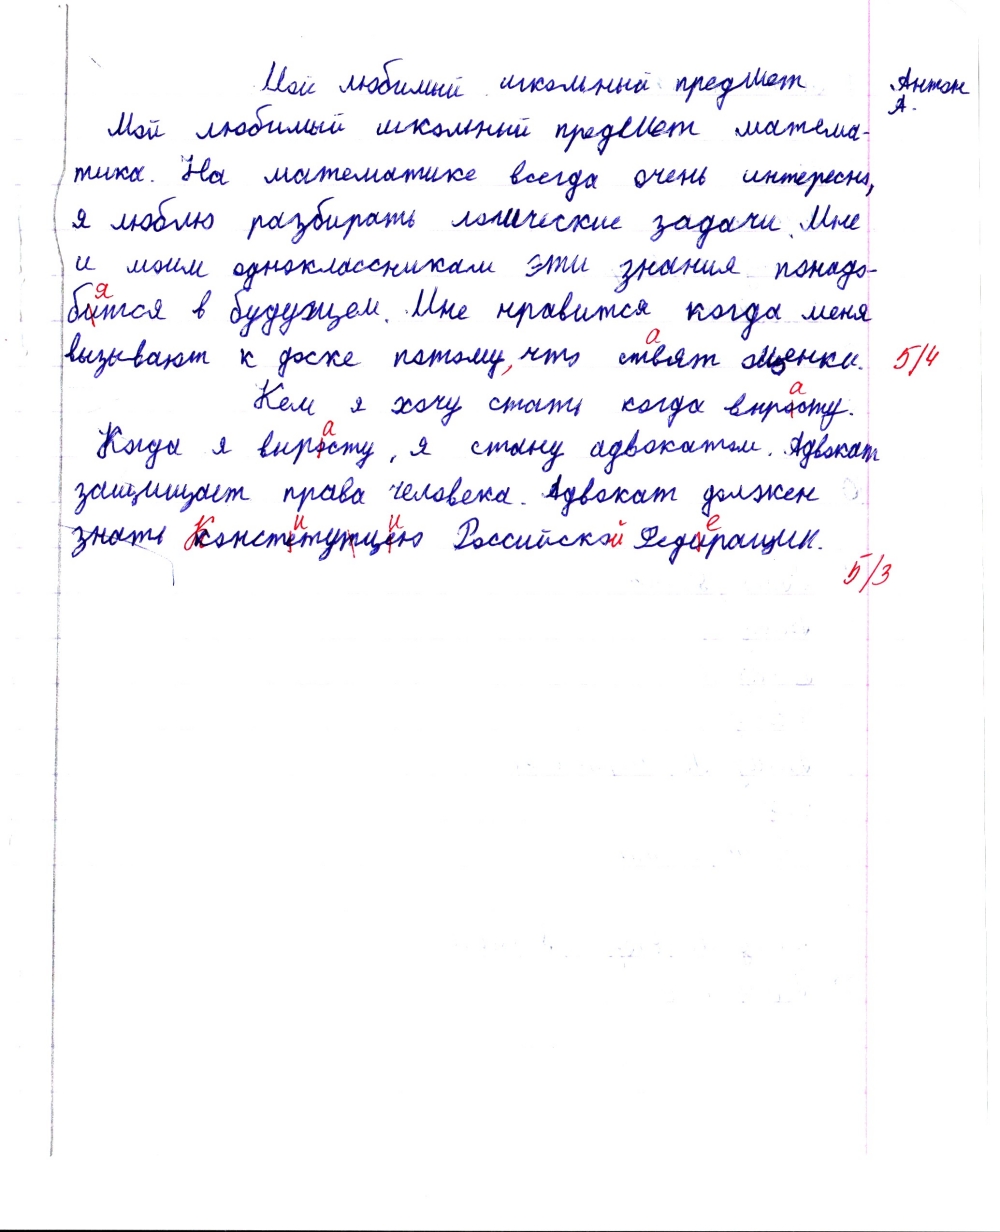 Мой любимый школьный предмет
Антон
А.
Мой любимый школьный предмет матема-
тика. На математике всегда очень интересно,
я люблю разбирать логические задачи. Мне
и моим одноклассникам эти знания понадо-
битсся в будущем. Мне нравится когда меня
вызывают к доске потому, что ствят оценки.
5/4
Кем я хочу стать когда выросту.
Когда я выросту, я стану адвокатом. Адвокат
защищает права человека. Адвокат должен
знать Констетутцею Российской Федирации.
5/3